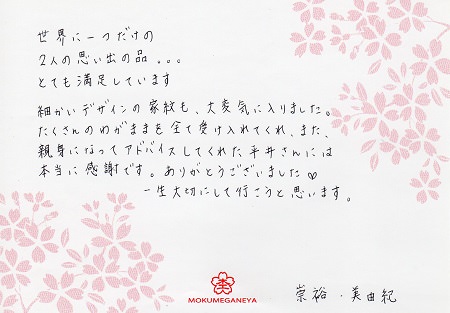 世界に一つだけの
2人の思い出の品。。。
とても満足しています
細かいデザインの家紋も、大変気に入りました。
たくさんのわがままを全て受け入れてくれ、また、
親身になってアドバイスしてくれた平井さんには
本当に感謝です。ありがとうございました♡
一生大切にして行こうと思います。
MOKUMEGANEYA
崇裕・美由紀